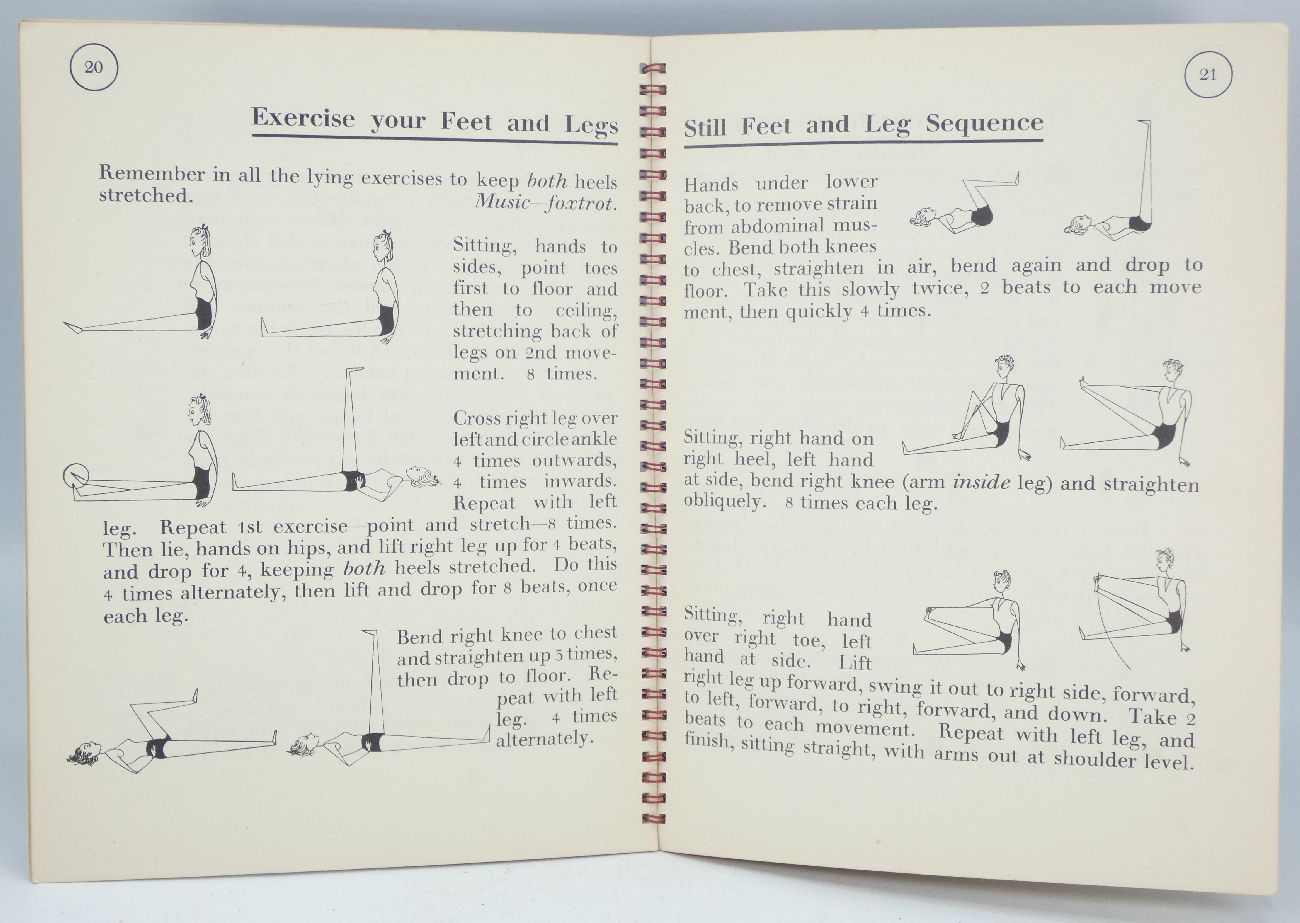 20
Exercise your Feet and Legs
Remember in all the lying exercises to keep both heels
stretched. Music—foxtrot.
Sitting, hands to
sides, point toes
first to floor and
then to ceiling,
stretching back of
legs on 2nd move-
ment. 8 times.
Cross right leg over
left and circle ankle
4 times outwards,
4 times inwards.
Repeat with left
leg. Repeat 1st exercise—point and stretch—8 times.
Then lie, hands on hips, and lift right leg up for 4 beats,
and drop for 4, keeping both heels stretched. Do this
4 times alternately, then lift and drop for 8 beats, once
each leg.
Bend right knee to chest
and straighten up 3 times,
then drop to floor. Re-
peat with left
leg. 4 times
alternately.
21
Still Feet and Leg Sequence
Hands under lower
back, to remove strain
from abdominal mus-
cles. Bend both knees
to chest, straighten in air, bend again and drop to
floor. Take this slowly twice, 2 beats to each move
ment, then quickly 4 times.
Sitting, right hand on
right heel, left hand
at side, bend right knee (arm inside leg) and straighten
obliquely. 8 times each leg.
Sitting, right hand
over right toe, left
hand at side. Lift
right leg up forward, swing it out to right side, forward,
to left, forward, to right, forward, and down. Take 2
beats to each movement. Repeat with left leg, and
finish, sitting straight, with arms out at shoulder level.